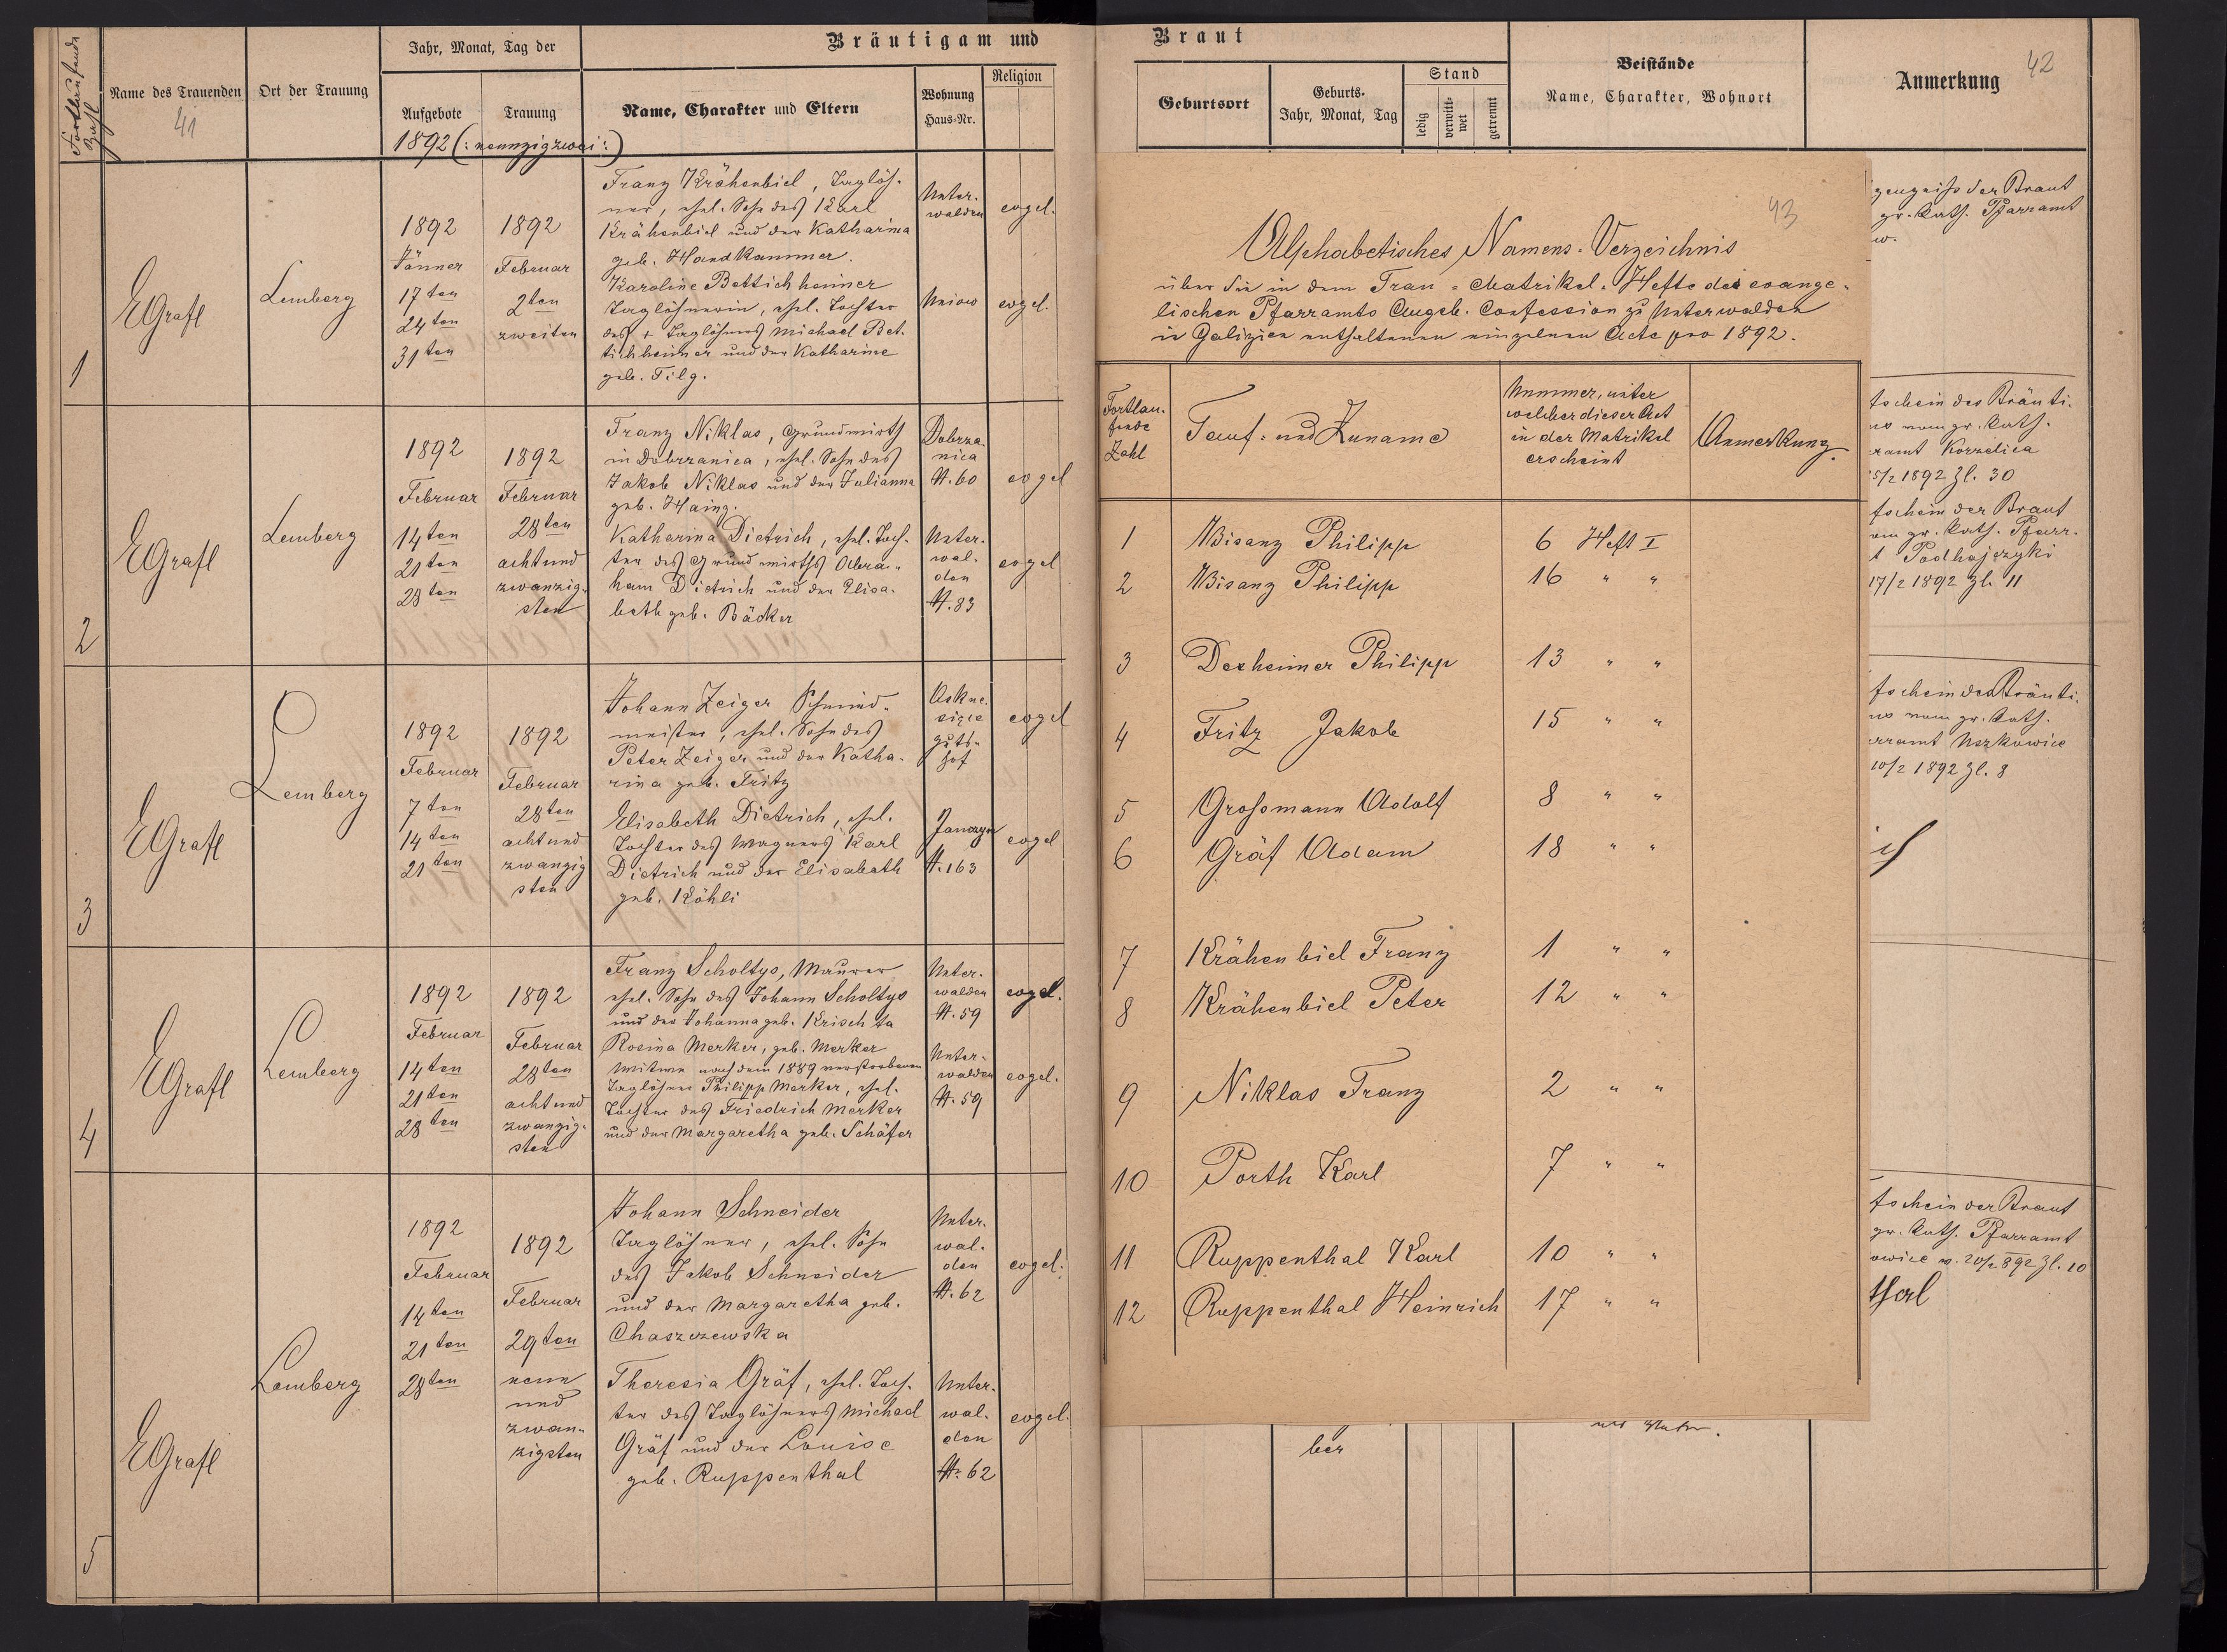 Fortlaufende
Zahl
Name des Trauenden
41
Ort der Trauung
Jahr, Monat, Tag der
Aufgebote
Trauung
1892 (: neunzigzwei :)
Bräutigam und
Name, Charakter und Eltern
Wohnung
Haus-Nr.
Religion
1
EGrafl
Lemberg
1892
Jänner
17ten
24ten
31ten
1892
Februar
2ten
zweiten
Franz Krähenbiel, Taglöh-
ner, ehel. Sohn des Karl
Krähenbiel und der Katharina
geb. Handkammer.
Karoline Bettichheimer
Taglöhnerin, ehel. Tochter
des + Taglöhners Michael Bet-
tichheimer und der Katharine
geb. Filg.
Unter-
walden
Uniow
evgel.
evgel.
2
EGrafl
Lemberg
1892
Februar
14ten
21ten
28ten
1892
Februar
28ten
achtund
zwanzig-
sten
Franz Niklas, Grundwirth
in Dobrzanica, ehel. Sohn des
Jakob Niklas und der Julianna
geb. Haing.
Katharina Dietrich, ehel. Toch-
ter des Grundwirths Abra-
ham Dietrich und der Elisa-
beth geb. Bäcker
Dobrza-
nica
N. 60
Unter-
wal-
den
N. 83
evgel
evgel
3
EGrafl
Lemberg
1892
Februar
7ten
14ten
21ten
1892
Februar
28ten
achtund
zwanzig
sten
Johann Zeiger Schmied-
meister, ehel. Sohn des
Peter Zeiger und der Katha-
rina geb. Fritz
Elisabeth Dietrich, ehel.
Tochter des Wagners Karl
Dietrich und der Elisabeth
geb. Köhli
Guts-
hof
Janczyn
N. 163
evgel
evgel
4
EGrafl
Lemberg
1892
Februar
14ten
21ten
28ten
1892
Februar
28ten
achtund
zwanzig-
sten
Franz Scholtys, Maurer
ehel. Sohn des Johann Scholtys
und der Johanna geb. Krischta
Rosina Merker, geb. Merker
Witwe nach dem 1889 verstorbenen
Taglöhner Philipp Merker, ehel.
Tochter des Friedrich Merker
und der Margaretha geb. Schäfer
Unter-
walden
N. 59
Unter-
walden
N. 59
evgel.
evgel.
5
EGrafl
Lemberg
1892
Februar
14ten
21ten
28ten
1892
Februar
29ten
neun
und
zwan-
zigsten
Johann Schneider
Taglöhner, ehel. Sohn
des Jakob Schneider
und der Margaretha geb.
Chaszczewska
Theresia Gräf, ehel. Toch-
ter des Taglöhners Michael
Gräf und der Louise
geb. Ruppenthal
Unter-
wal-
den
N. 62
Unter-
wal-
den
N. 62
evgel.
evgel.
Braut
Geburtsort
Geburts-
Jahr, Monat, Tag
Stand
ledig
verwitt-
wet
getrennt
Beistände
Name, Charakter, Wohnort
Anmerkung
42
43
Alphabetisches Namens-Verzeichnis
über die in dem Trau-Matrikel-Hefte des evange-
lischen Pfarramts Augsb. Confession zu Unterwalden
in Galizien enthaltenen einzelnen Acte pro 1892.
Fortlau-
fende
Zahl
Tauf- und Zuname
Nummer, unter
welcher dieser Act
in der Matrikel
erscheint
Anmerkung.
1 Bisanz Philipp 6 Heft I
2 Bisanz Philipp 16 " "
3 Dexheimer Philipp 13 " "
4 Fritz Jakob 15 " "
5 Grossmann Adolf 8 " "
6 Gräf Adam 18 " "
7 Krähenbiel Franz 1 " "
8 Krähenbiel Peter 12 " "
9 Niklas Franz 2 " "
10 Porth Karl 7 " "
11 Ruppenthal Karl 10 " "
12 Ruppenthal Heinrich 17 " "
zeugniss der Braut
gr. kath. Pfarramt
w.
fschein des Bräuti-
vom gr. kath.
ramt Korzelica
5/2 1892 Zl. 30
fschein der Braut
gr. kath. Pfarr-
t Podhajczyki
17/2 1892 Zl. 11
fschein des Bräuti-
vom gr. kath.
rramt Uszkowice
10/2 1892 Zl. 8
fschein der Braut
gr. kath. Pfarramt
owice v. 20/2 892 Zl. 10
thal
ber